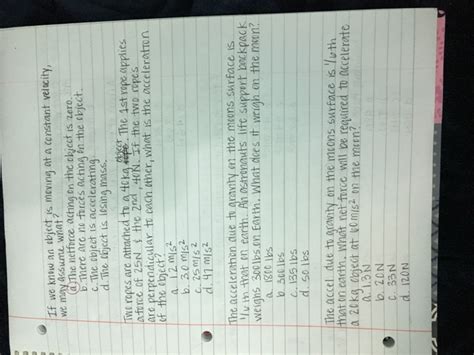 If we know an object is moving at a constant velocity,
we may assume what?
a. The net force acting on the object is zero.
b. There are no forces acting on the object.
c. The object is accelerating.
d. The object is losing mass.
Two ropes are attached to a 40kg object. The 1st rope applies
a force of 25N & the 2nd, 41N. If the two ropes
are perpendicular to each other, what is the acceleration
of the object?
a. 1.2 m/s²
b. 3.0 m/s²
c. 25 m/s²
d. 47 m/s²
The acceleration due to gravity on the moons surface is
1/6 th that on earth. An astronauts life support backpack
weighs 300lbs on Earth. What does it weigh on the moon?
a. 1800 lbs
b. 300 lbs
c. 135 lbs
d. 50 lbs
The accel. due to gravity on the moons surface is 1/6 th
that on earth. What net force will be required to accelerate
a 20kg object at 6.0 m/s² on the moon?
a. 1.3 N
b. 20N
c. 33N
d. 120N